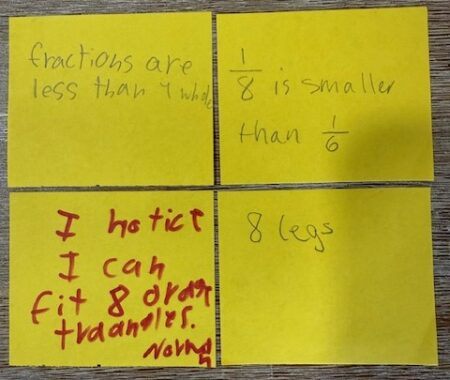 fractions are
less than 1 whole
1/8 is smaller
than 1/6
I notice
I can
fit 8 orange
traangles.
Norman
8 legs